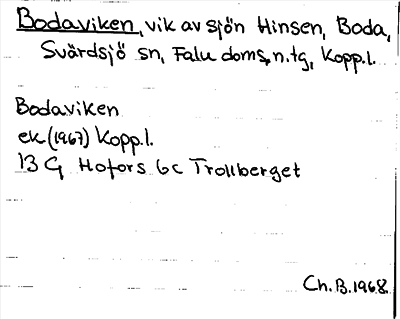 Bodaviken, vik av sjön Hinsen, Boda,
Svärdsjö sn, Falu doms.n.tg, Kopp.l.
Bodaviken
ek (1967) Kopp.l.
13 G Hofors 6c Trollberget
Ch.B.1968